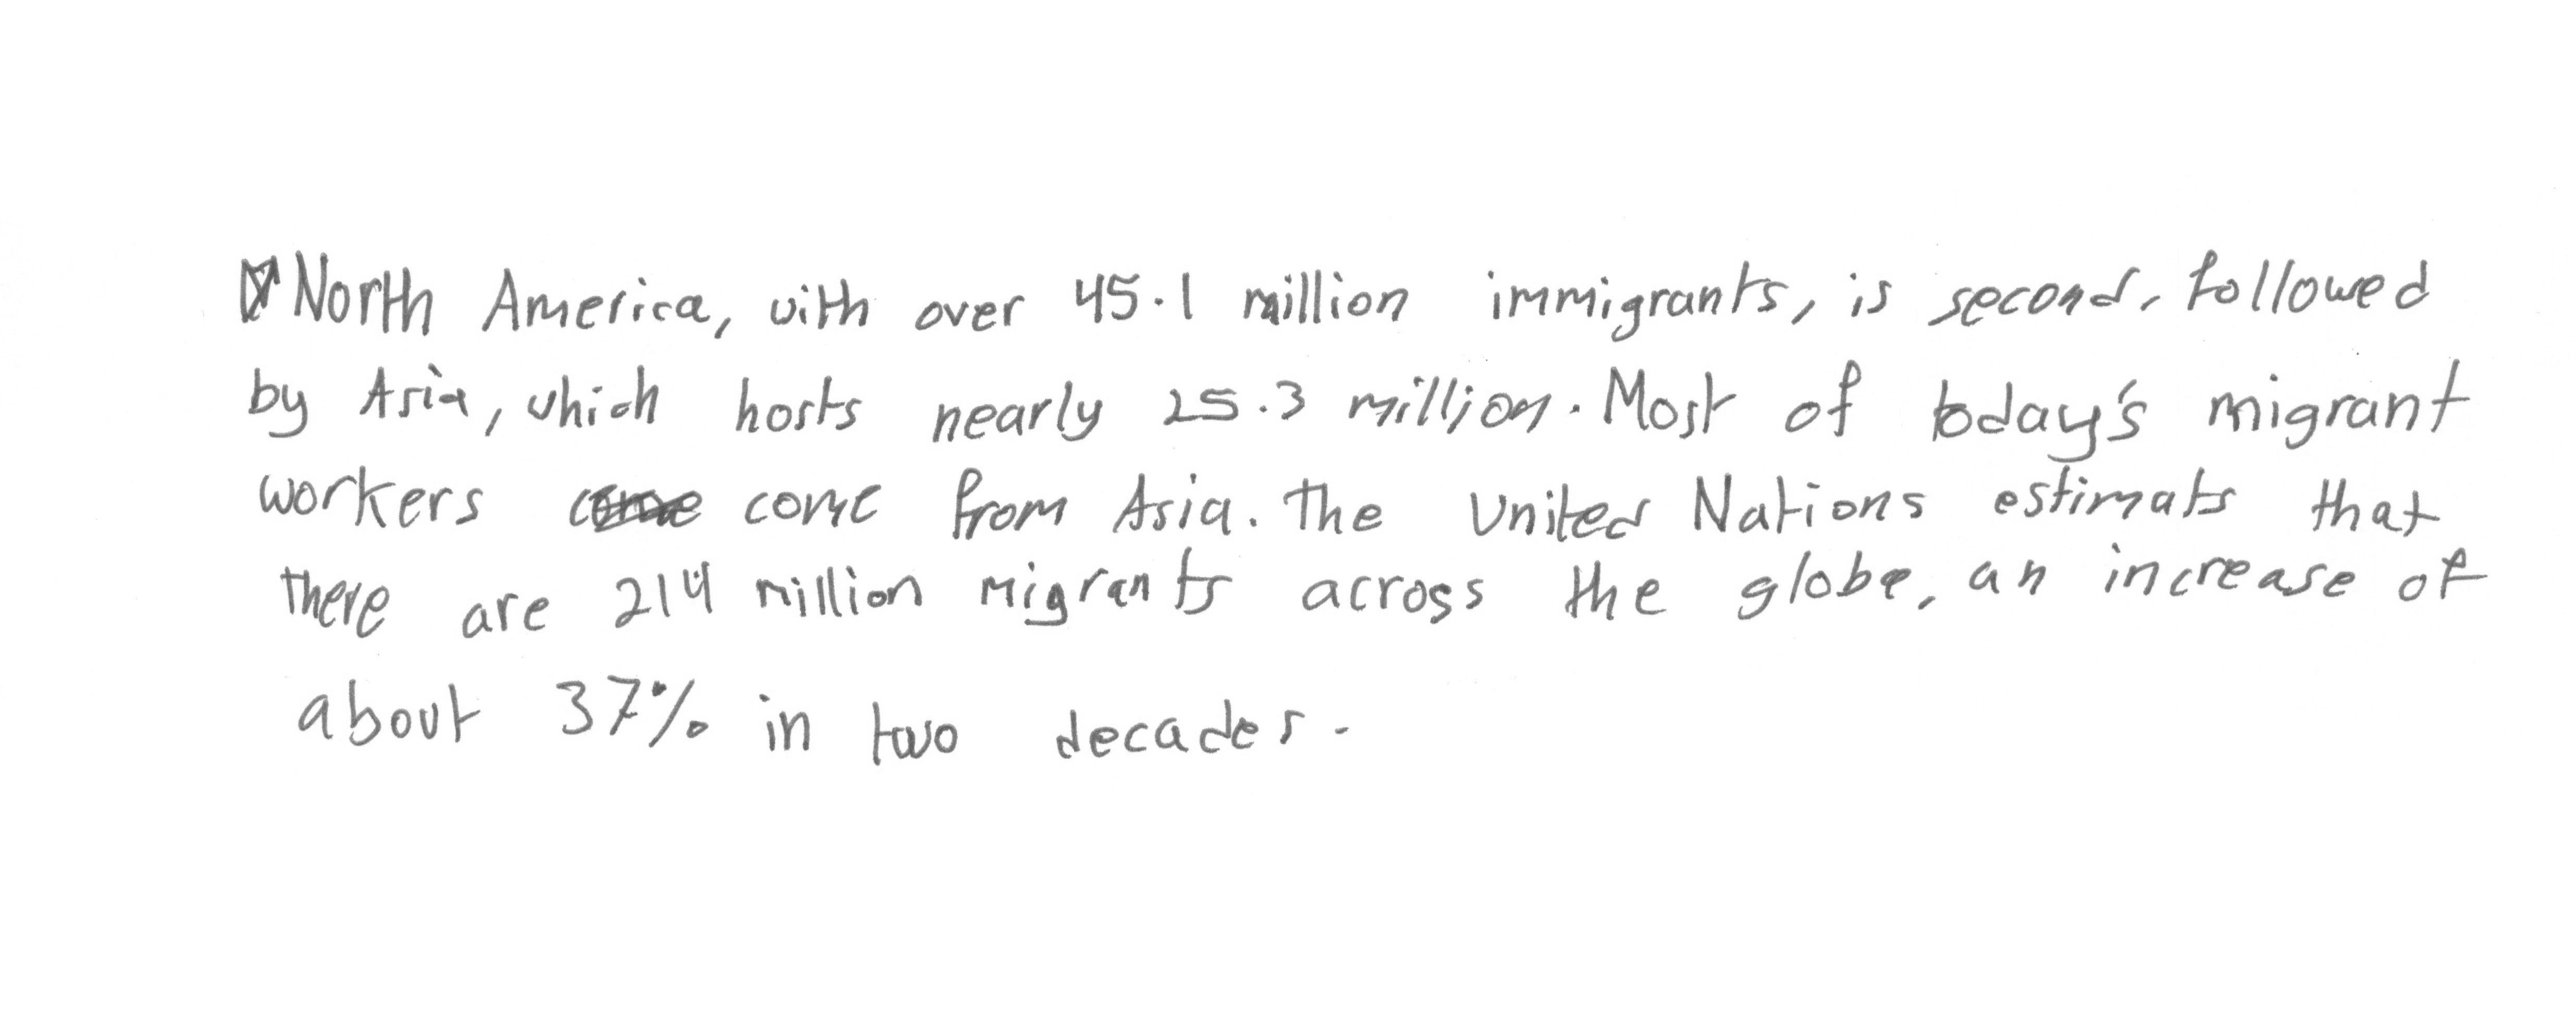 North America, with over 45.1 million immigrants, is second, followed
by Asia, which hosts nearly 25.3 million. Most of today's migrant
workers come from Asia. The United Nations estimats that
there are 214 million migrants across the globe, an increase of
about 37% in two decades.